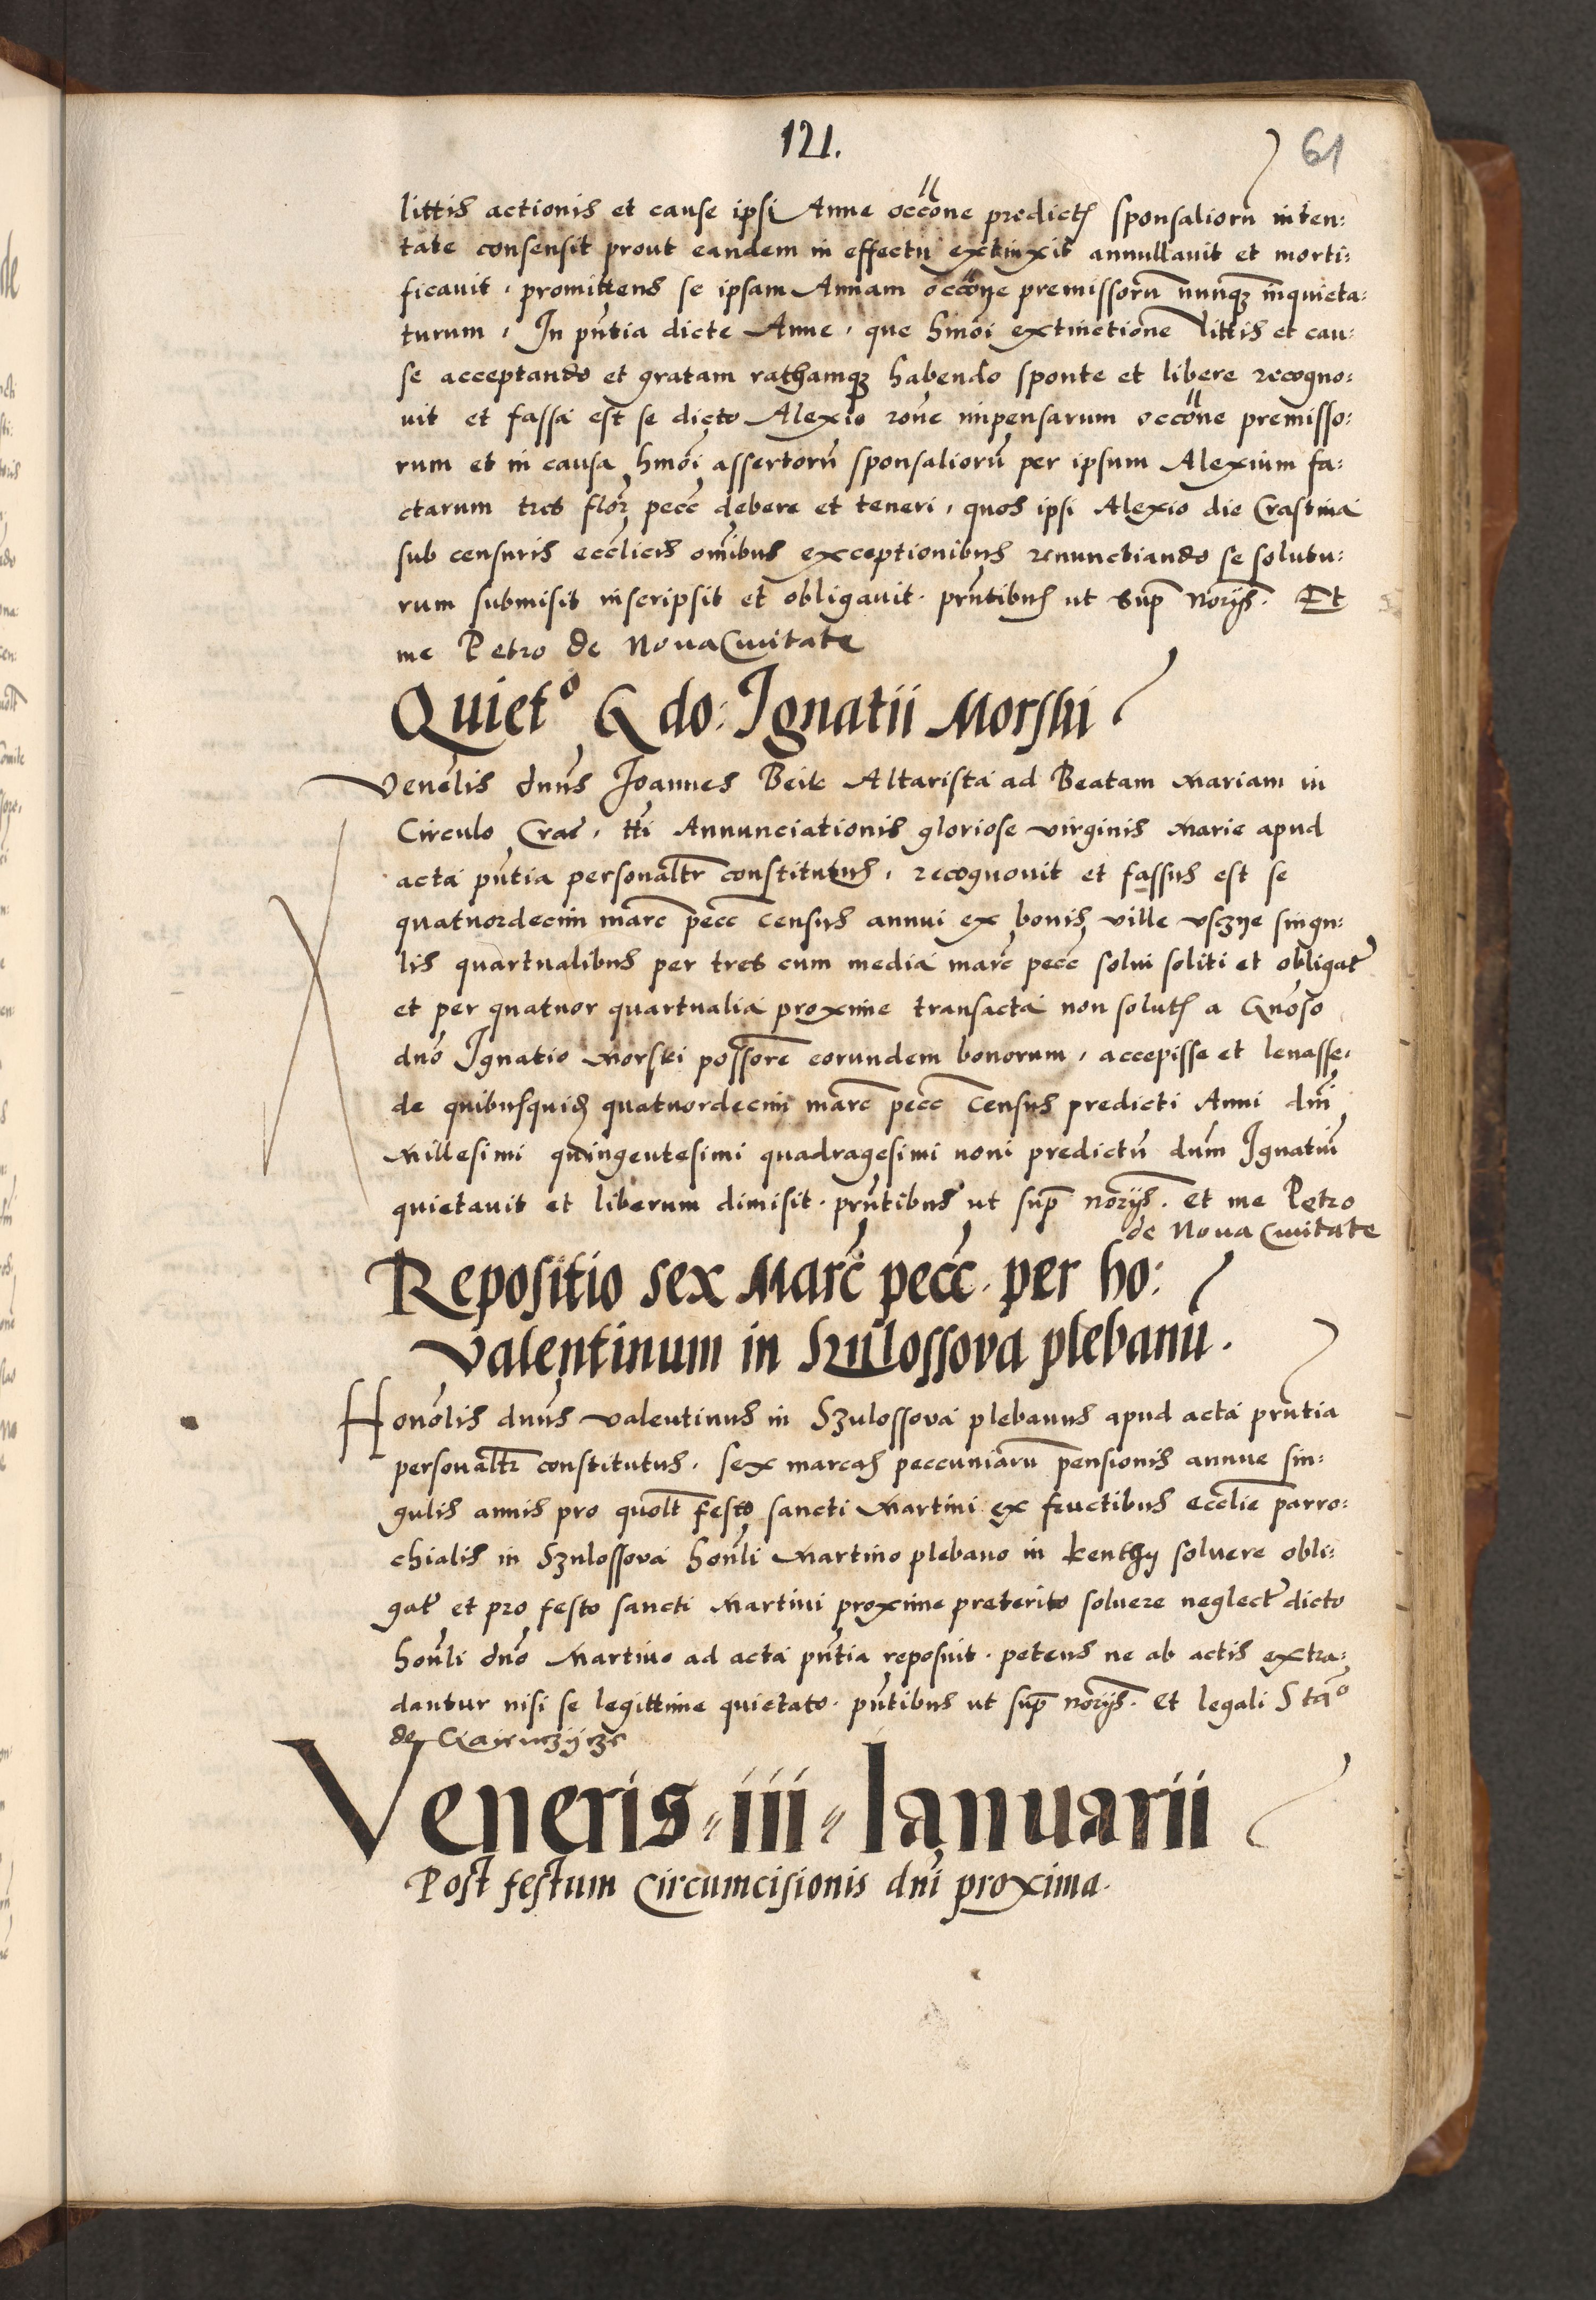 121.
61
littis actionis et cause ipsi Anne occōne predict sponsaliorū inten:
tate consensit prout eandem in effectu extinxit annullavit et morti:
ficavit, promittens se ipsam Annam occōne premissorū nunqȝ inquieta:
turum, In pn̄tia dicte Anne, que hmōi extinctionē littis et cau:
se acceptando et gratam rathamqȝ habendo sponte et libere recogno:
vit et fassa est se dicto Alexio rōne impensarum occōne premisso:
rum et in causa hmōi assertorū sponsaliorū per ipsum Alexium fa:
ctarum tres flor pecc debere et teneri, quos ipsi Alexio die Crastina
sub censuris eccl̄icis om̄ibus exceptionibus renunctiando se solutu:
rum submisit inscripsit et obligavit. prn̄tibus ut sup norijs. Et
me Petro de Nova Civitate
Quietō G do: Ignatii Morski
Venēlis dnūs Joannes Beik Altarista ad Beatam Mariam in
Circulo Crac, tti Annunciationis gloriose virginis Marie apud
acta pn̄tia personaltr constitutus, recognovit et fassus est se
quatuordecim marc pecc census annui ex bonis ville uszye singu:
lis quartualibus per tres cum media marc pecc solui soliti et obligat
et per quatuor quartualia proxime transacta non solut a Gnōso
dnō Ignatio Morski possorē eorundem bonorum, accepisse et levasse,
de quibusquidȝ quatuordecim marc pecc census predicti Anni dnī
Millesimi quingentesimi quadragesimi noni predictū dnm̄ Ignatiū
quietavit et liberum dimisit. prn̄tibus ut sup norijs. et me Petro
de Nova Civitate
Repositio sex Marc pecc. per ho:
Valentinum in Szulossova plebanū.
Honōlis dnūs Valentinus in Szulossova plebanus apud acta prn̄tia
personaltr constitutus, sex marcas peccuniarū pensionis annue sin:
gulis annis pro quolt festo sancti Martini ex fructibus eccliē parro:
chialis in Szulossova honl̄i Martino plebano in Kenthy solvere obli:
gat et pro festo sancti Martini proxime preterito solvere neglect dicto
honl̄i dnō Martino ad acta pn̄tia reposuit. petens ne ab actis extra:
dantur nisi se legittime quietato. pn̄tibus ut sup norijs. Et legali Stāo
de
Veneris iii Ianuarii
Post festum Circumcisionis dnī proxima.